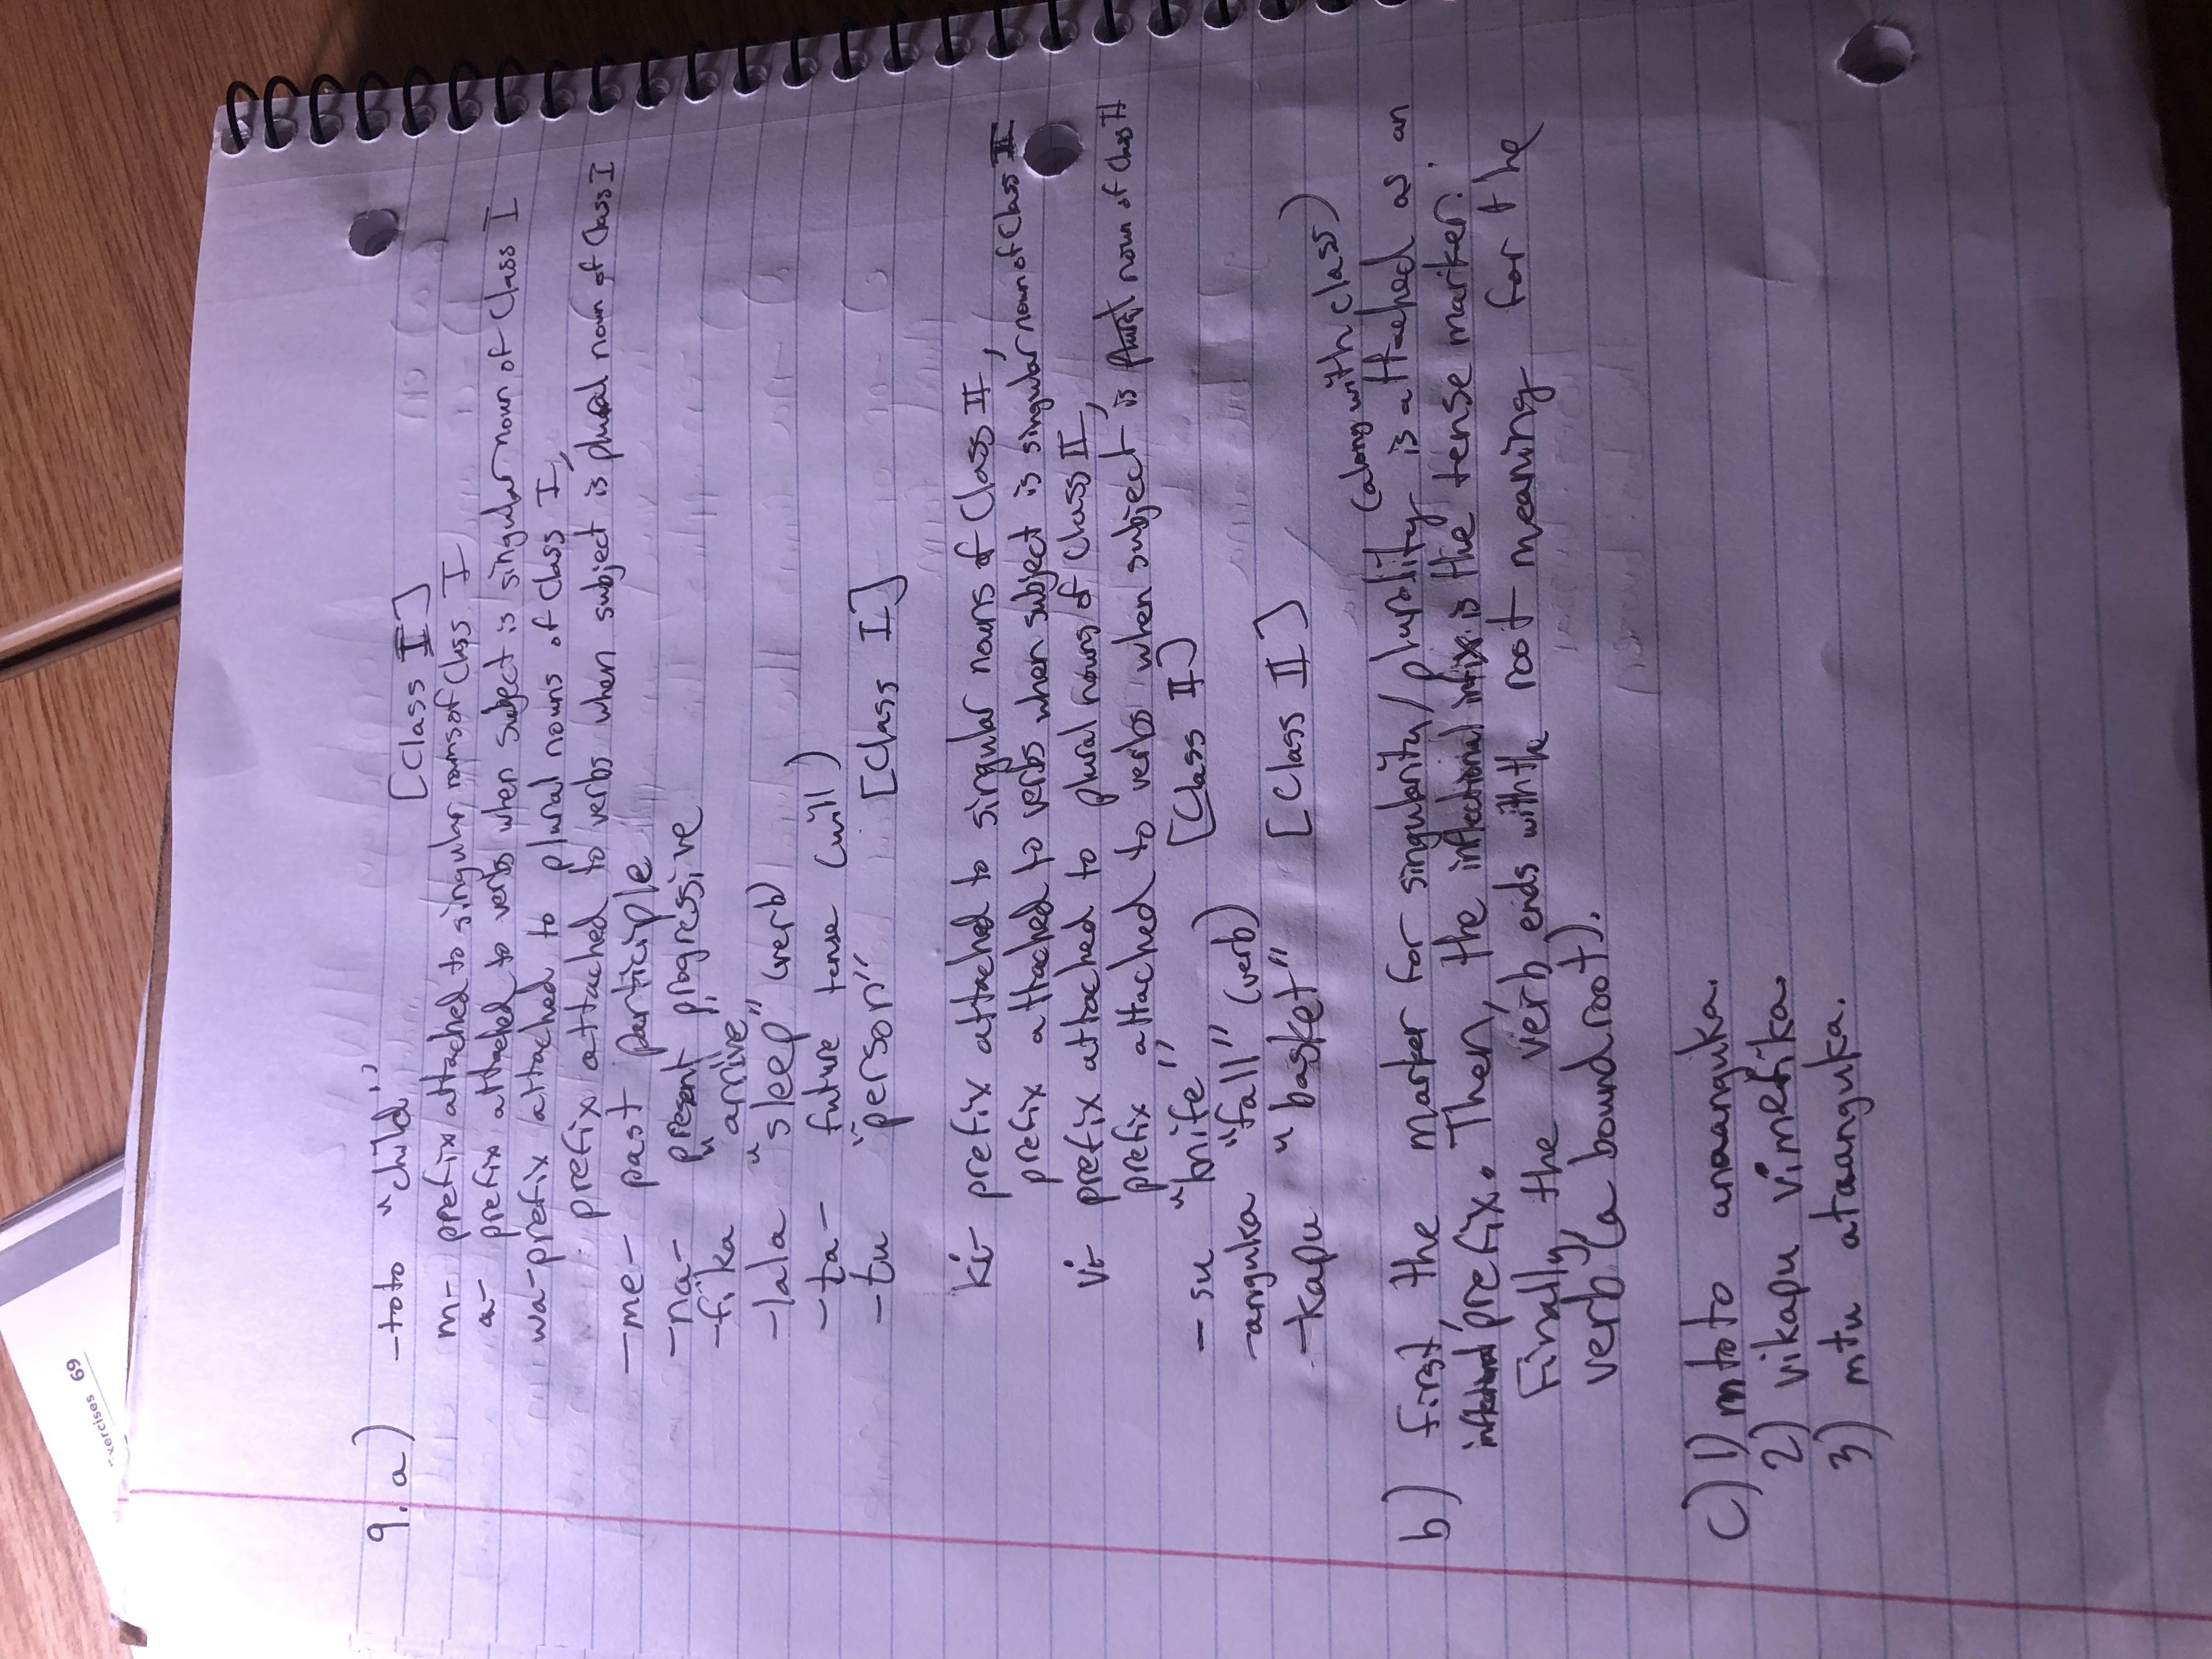 Exercises 69
9. a) -toto "child" [Class I]
m- prefix attached to singular nouns of Class I
a- prefix attached to verbs when subject is singular noun of Class I
wa- prefix attached to plural nouns of Class I,
prefix attached to verbs when subject is plural noun of Class I
-me- past participle
-na- present progressive
-fika "arrive"
-lala "sleep" (verb)
-ta- future tense (will)
-tu "person" [Class I]
ki- prefix attached to singular nouns of Class II,
prefix attached to verbs when subject is singular noun of Class II
vi- prefix attached to plural nouns of Class II,
prefix attached to verbs when subject is plural noun of Class II
-su "knife" [Class II]
-anguka "fall" (verb)
-kapu "basket" [Class II]
(along with class)
b) First, the marker for singularity/plurality is attached as an
inflectional prefix. Then, the inflectional infix is the tense marker.
Finally, the verb ends with the root meaning for the
verb (a bound root).
c) 1) mtoto anaanguka.
2) vikapu vimefika.
3) mtu ataanguka.